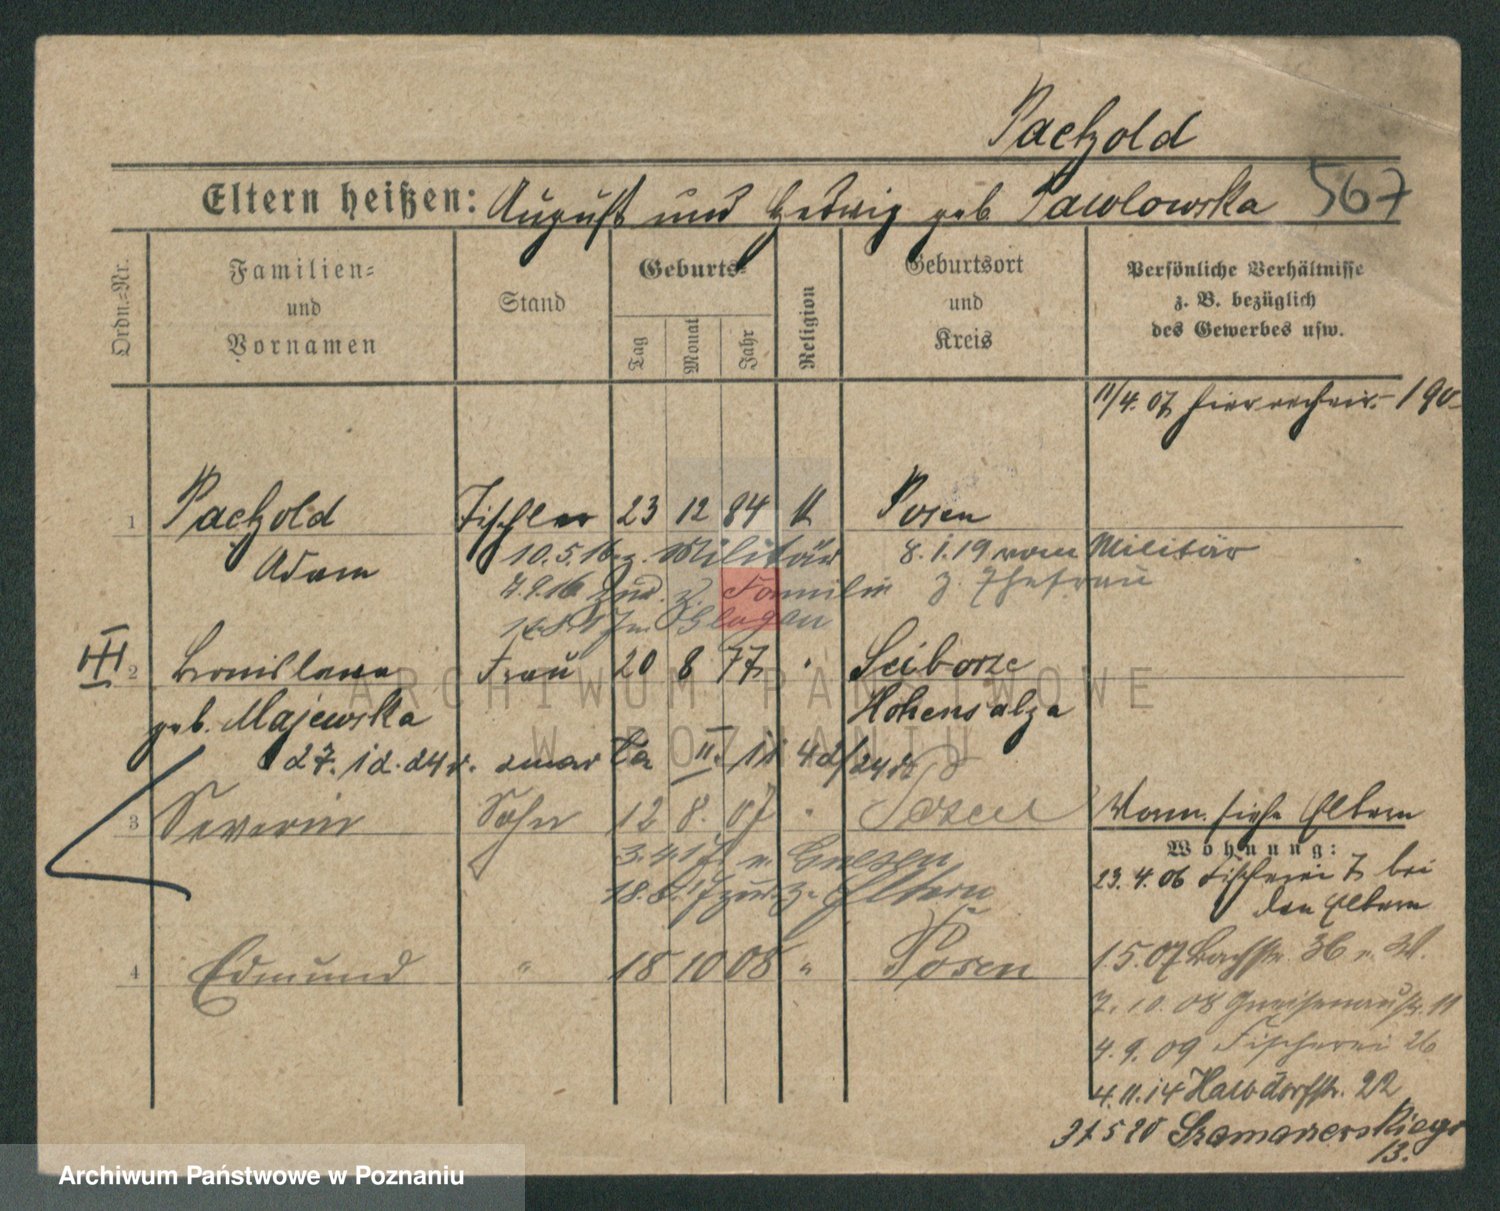 Paetzold
Eltern heißen: August und Hedwig geb. Pawlowska 567
Ordn.=Nr.
Familien=
und
Vornamen
Stand
Geburts=
Tag
Monat
Jahr
Religion
Geburtsort
und
Kreis
Persönliche Verhältnisse
z. B. bezüglich
des Gewerbes usw.
11/4. 07
1 Paetzold Tischler 23 12 84 k Posen
Adam
10.5.16 z. Militär 8.1.19 vom Militär
7.9.16 z. Familie z. Ehefrau
Glogau
III
2 Bronislawa Frau 20 8 77 " Sciborze
geb. Majewska Hohensalza
zmar
3 Severin Sohn 12 8. 07 " Posen Wann. siehe Eltern
Wohnung:
3.4.17 n. Gnesen
23.4.06 Fischerei 7 bei
18.8.17 zur. z. Eltern
den Eltern
4 Edmund " 18 10 08 " Posen
1.5.07 Bachstr. 36 b. W.
7.10.08 Gneisenaustr. 11
4.9.09 Fischerei 26
4.11.14 Halbdorfstr. 22
31 5 20 13.
Archiwum Państwowe w Poznaniu
ARCHIWUM PAŃSTWOWE
W POZNANIU